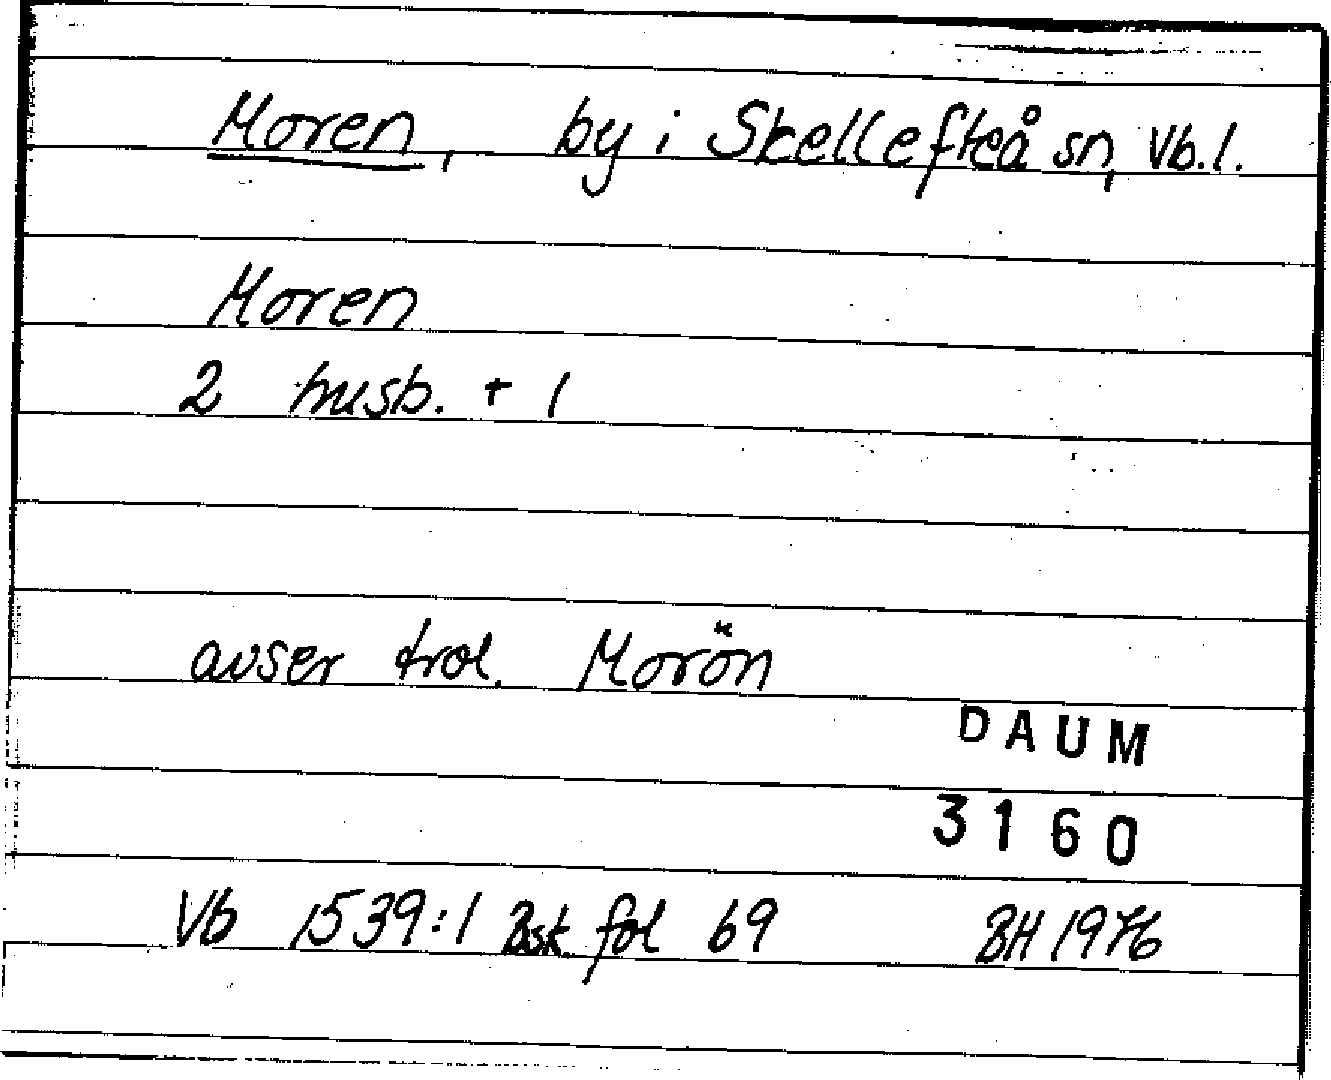 Moren, by i Skellefteå sn, Vb. l.
Moren
2 husb. + 1
avser trol. Morön
DAUM
3160
Vb 1539:1 Bsk fol 69 BH 1976